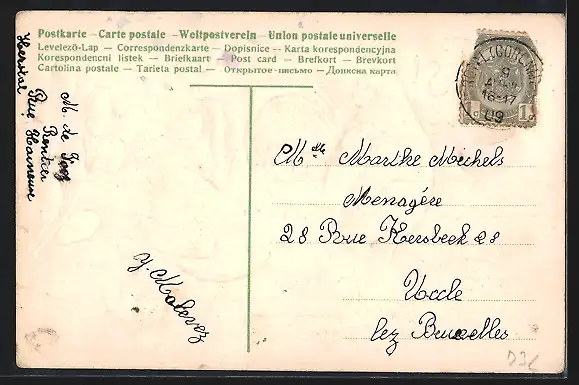 Postkarte — Carte postale — Weltpostverein — Union postale universelle
Levelező-Lap — Correspondenzkarte — Dopisnice — Karta korespondencyjna
Korespondencni listek — Briefkaart — Post card — Brefkort — Brevkort
Cartolina postale — Tarjeta postal — Открытое письмо — Дописна карта
M. de
Rentier
Rue Hameuse
Herstal
Mlle Marthe Michels
Menagére
28 Rue Kersbeek 28
Uccle
lez Bruxelles
J. Malevez
9
16-17
09
1c
D36